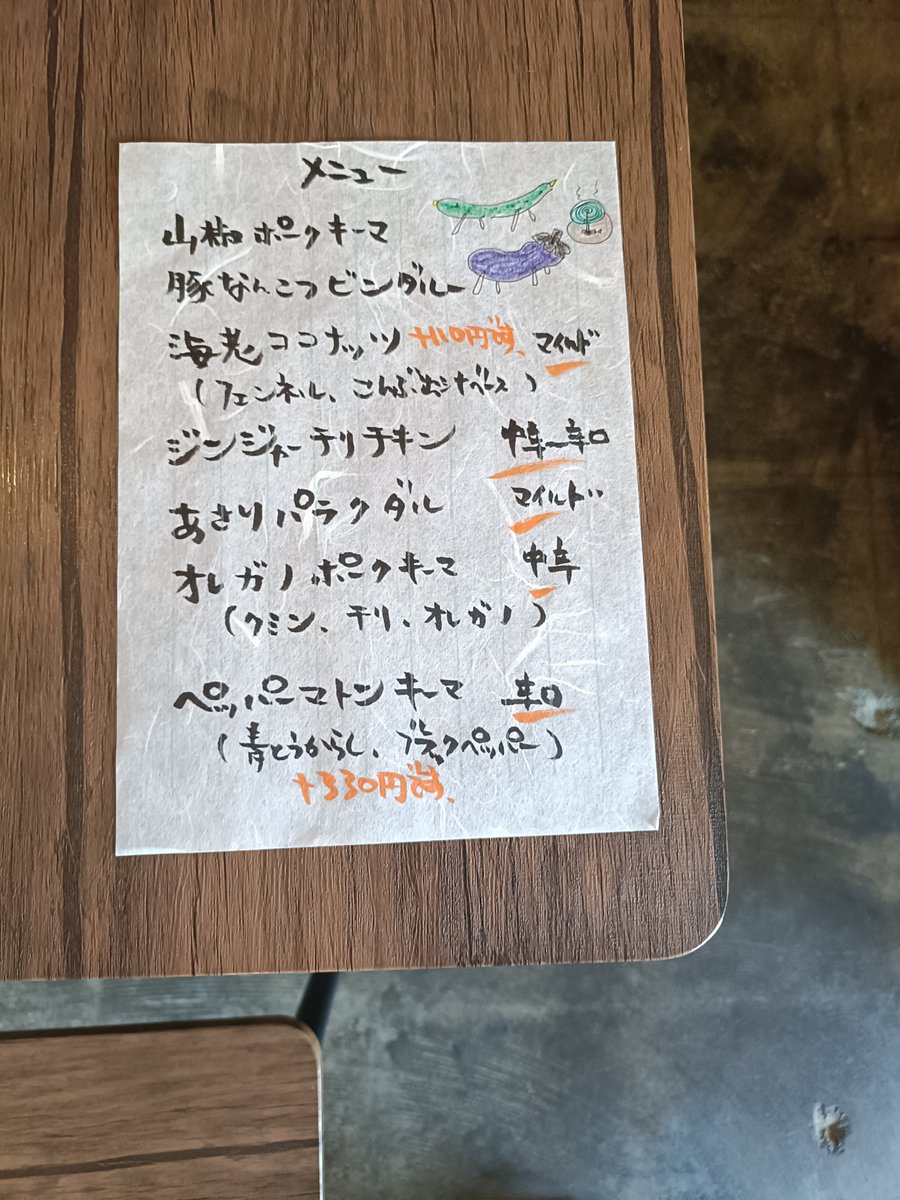 メニュー
山椒ポークキーマ
豚なんこつビンダルー
海老ココナッツ +110円です、 マイルド
(フェンネル、こんぶ出汁ベース)
ジンジャーチリチキン 中辛〜辛口
あさりパラクダル マイルド
オレガノポークキーマ 中辛
(クミン、チリ、オレガノ)
ペッパーマトンキーマ 辛口
(青とうがらし、ブラックペッパー)
+330円です、